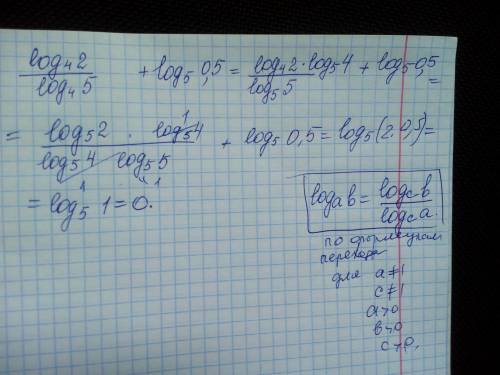 log₄2 / log₄5 + log₅0,5 = log₄2 · log₅4 / log₅5 + log₅0,5 =
= log₅2 · log₅4 / log₅4 log₅5 + log₅0,5 = log₅(2·0,5) =
= log₅1 = 0.
logₐb = log_c b / log_c a
по формулам
перехода
для a ≠ 1
c ≠ 1
a > 0
b > 0
c > 0.